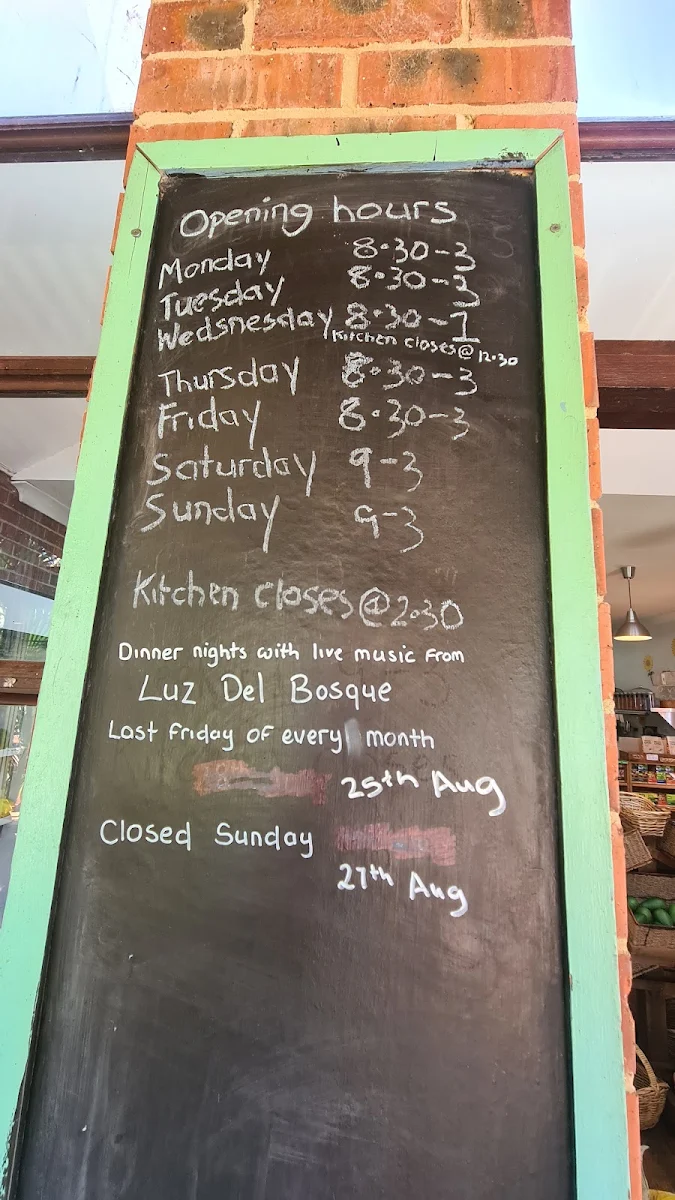 Opening hours
Monday 8.30-3
Tuesday 8.30-3
Wedsnesday 8.30-1
Kitchen closes@12.30
Thursday 8.30-3
Friday 8.30-3
Saturday 9-3
Sunday 9-3
Kitchen closes@2.30
Dinner nights with live music from
Luz Del Bosque
Last Friday of every month
25th Aug
Closed Sunday
27th Aug